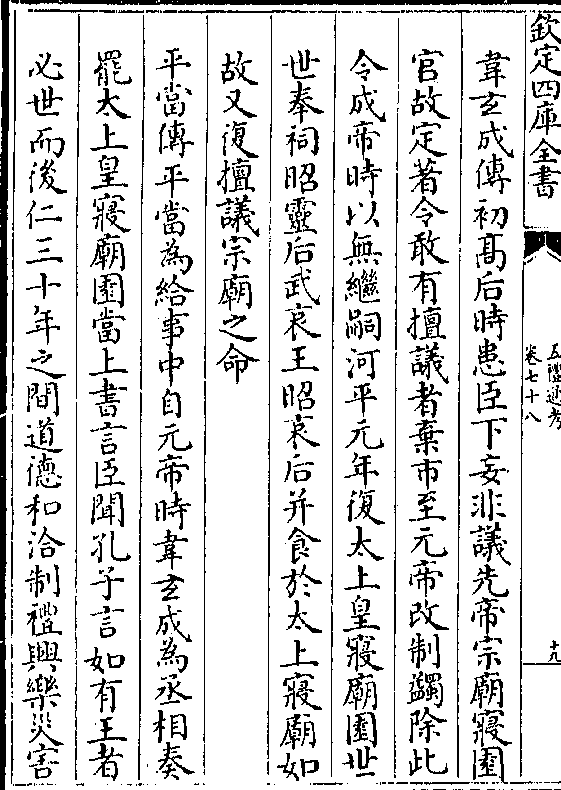 欽定四庫全書
五禮通考
卷七十八
十九
韋玄成傳初髙后時患臣下妄非議先帝宗廟寢園
官故定著令敢有擅議者棄市至元帝改制蠲除此
令成帝時以無繼嗣河平元年復太上皇寢廟園世
世奉祠昭靈后武哀王昭哀后并食於太上寢廟如
故又復擅議宗廟之命
平當傳平當為給事中自元帝時韋玄成為丞相奏
罷太上皇寢廟園當上書言臣聞孔子言如有王者
必世而後仁三十年之間道德和洽制禮興樂災害